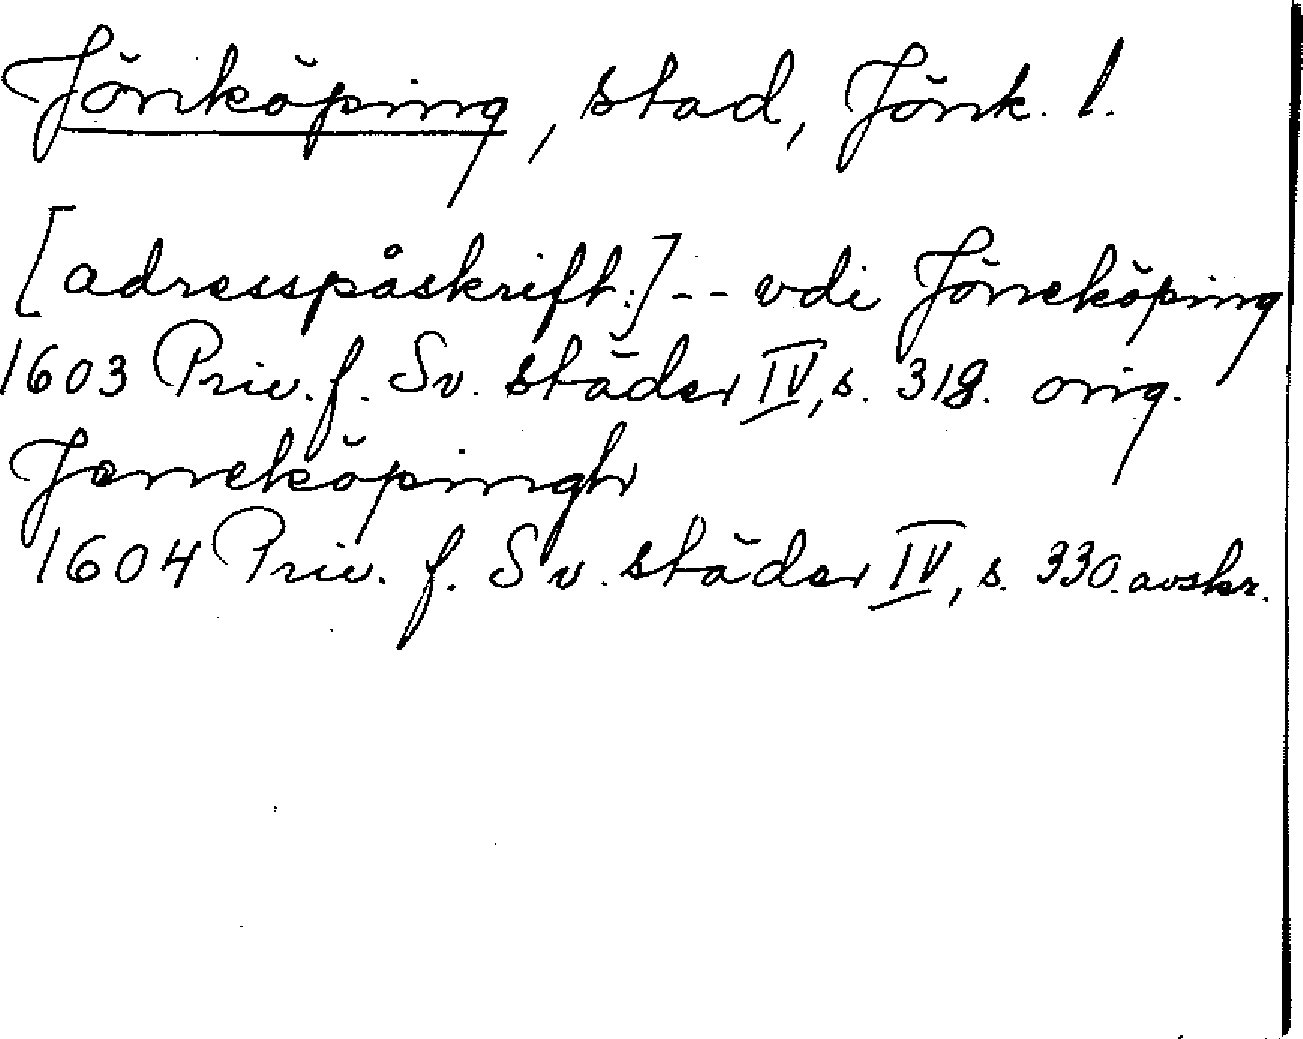 Jönköping, stad, Jönk. l.
[adresspåskrift:] -- vdi Jöneköping
1603 Priv. f. Sv. städer IV, s. 318. orig.
Jøneköpingh
1604 Priv. f. Sv. städer IV, s. 330. avskr.